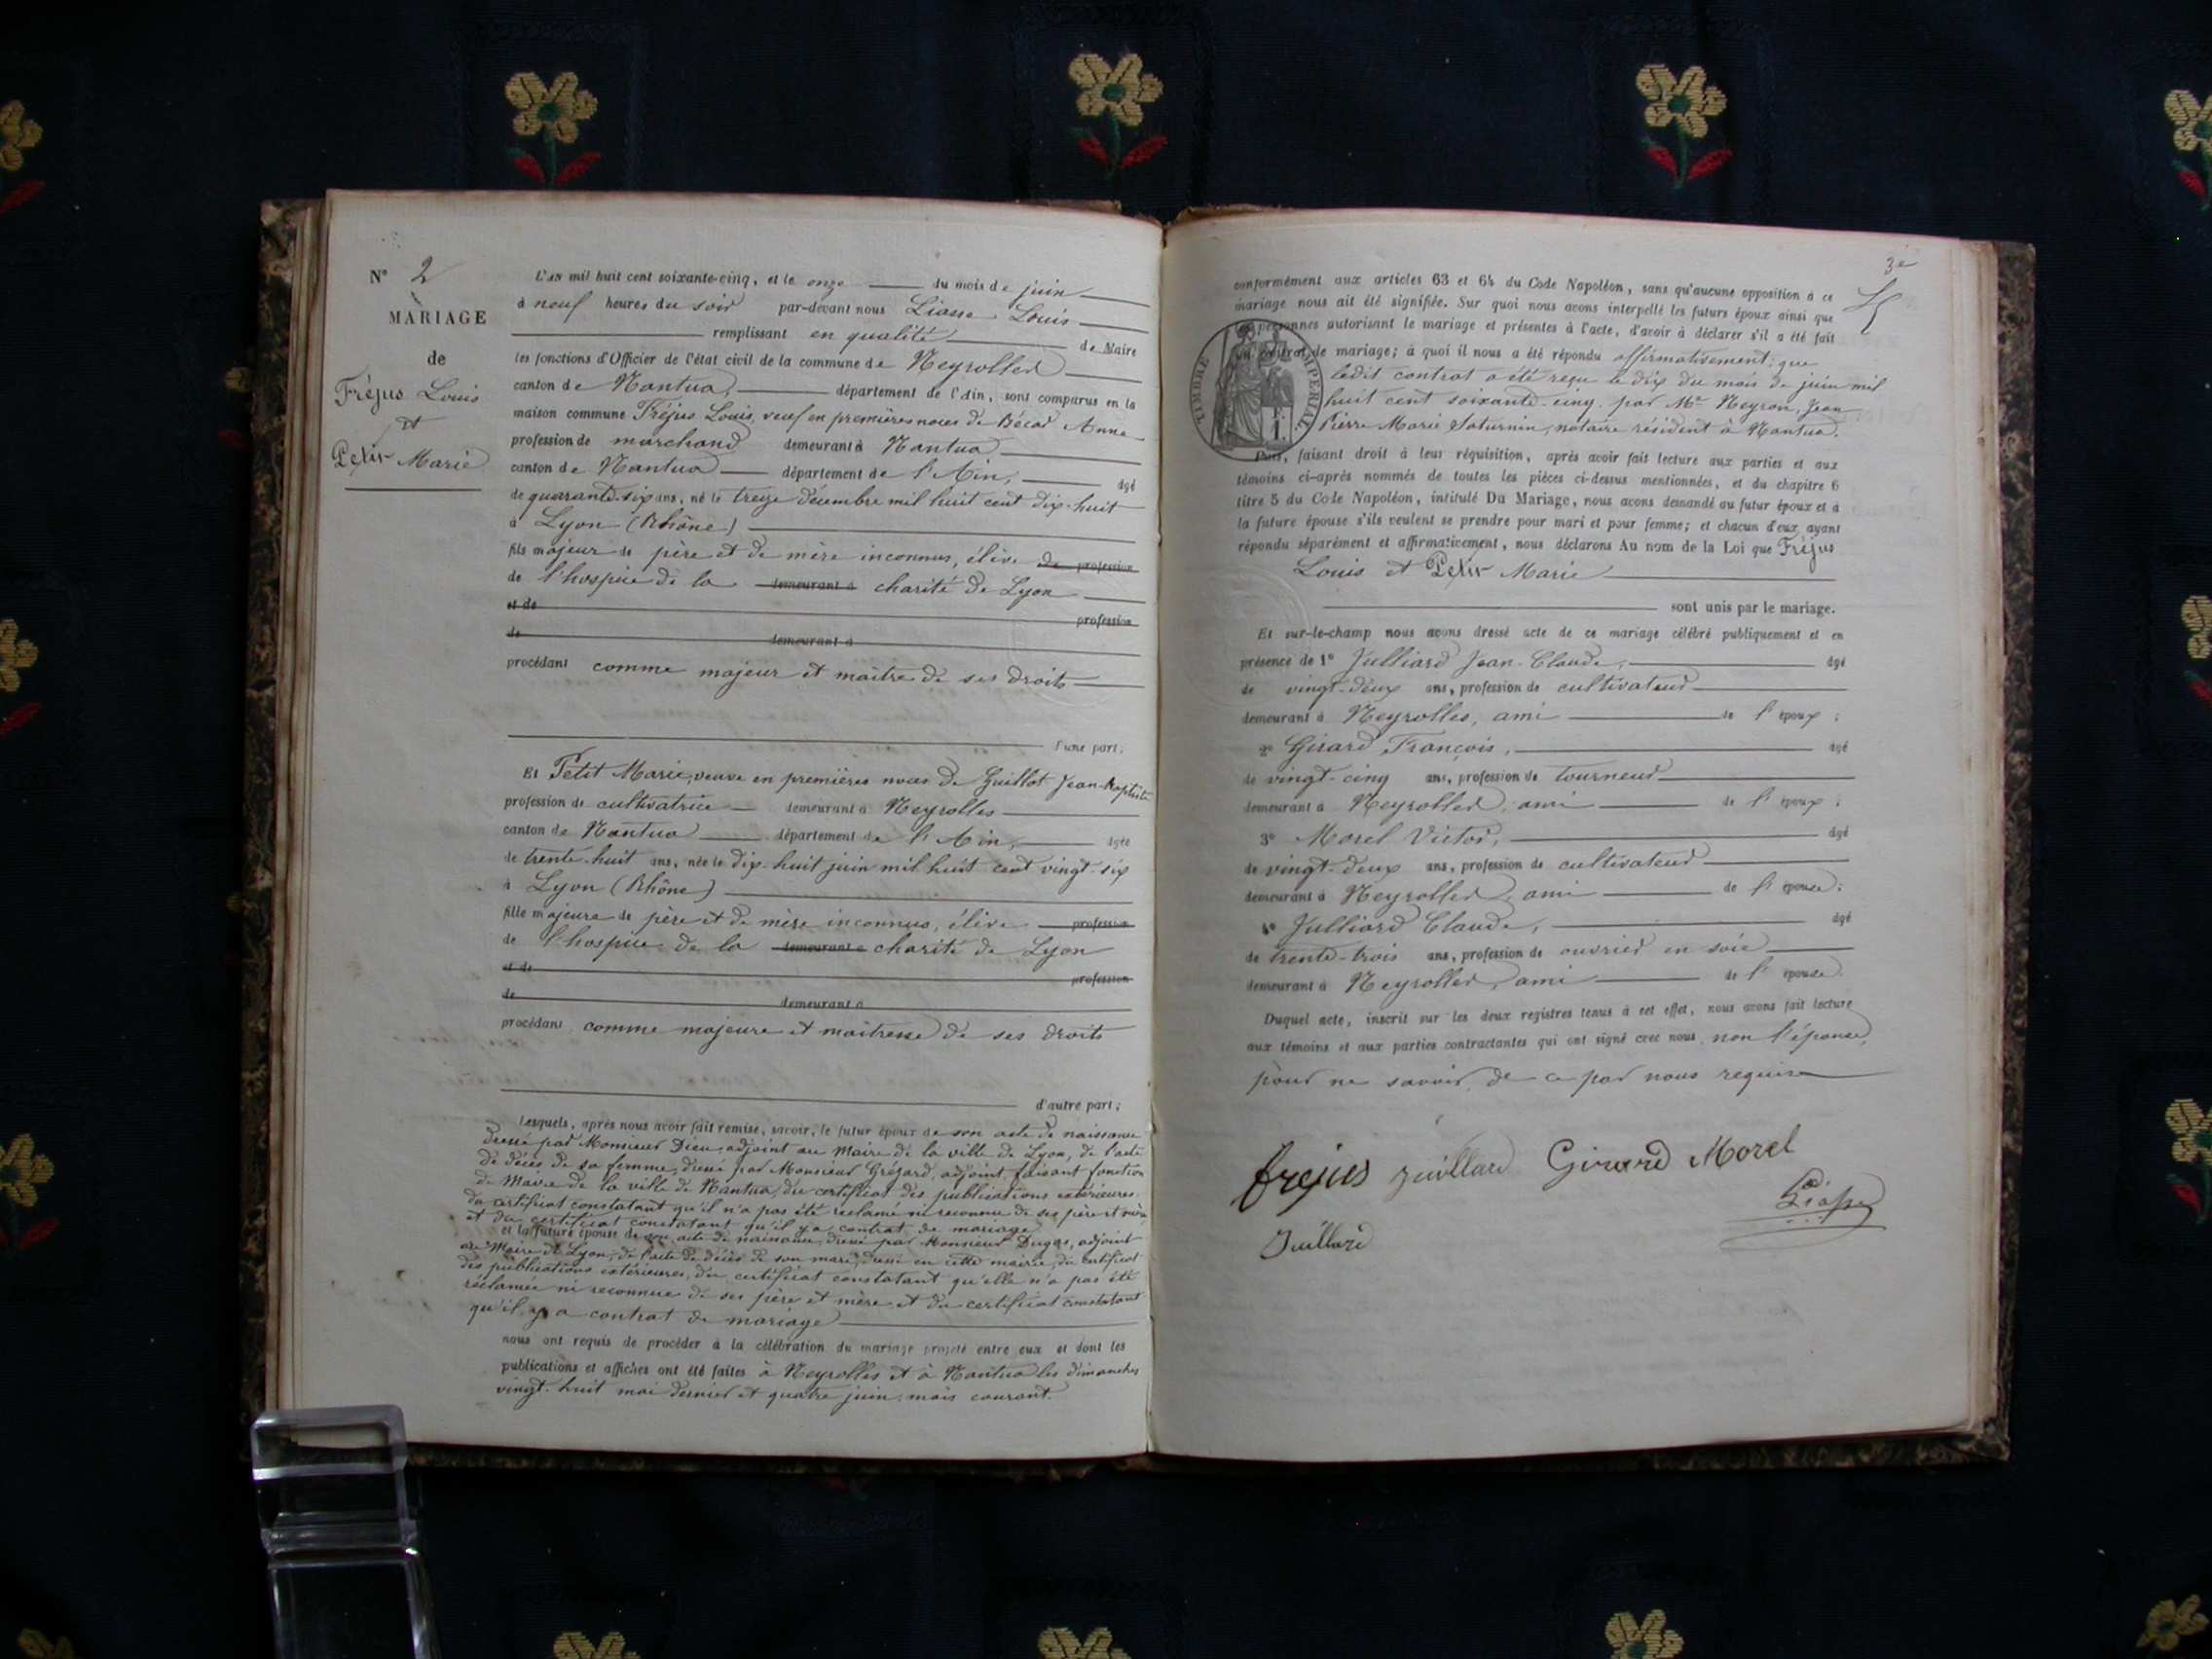 N° 2
MARIAGE
de
Fréjus Louis
et
Petit Marie
L'AN mil huit cent soixante-cinq, et le onze du mois de juin
à neuf heures du soir par-devant nous Liasse Louis
remplissant en qualité de Maire
les fonctions d'Officier de l'état civil de la commune de Neyrolles
canton de Nantua, département de l'Ain, sont comparus en la
maison commune Fréjus Louis, veuf en premières noces de Bécad Anne
profession de marchand demeurant à Nantua
canton de Nantua département de l'Ain, âgé
de quarante-six ans, né le treize décembre mil huit cent dix-huit
à Lyon (Rhône)
fils majeur de père et de mère inconnus, élève de profession
de l'hospice de la demeurant à charité de Lyon
et de profession
de demeurant à
procédant comme majeur et maître de ses droits
d'une part;
Et Petit Marie, veuve en premières noces de Guillot Jean-Baptiste
profession de cultivatrice demeurant à Neyrolles
canton de Nantua département de l'Ain, âgée
de trente-huit ans, née le dix-huit juin mil huit cent vingt-six
à Lyon (Rhône)
fille majeure de père et de mère inconnus, élève profession
de l'hospice de la demeurant à charité de Lyon
et de profession
de demeurant à
procédant comme majeure et maîtresse de ses droits
d'autre part;
Lesquels, après nous avoir fait remise, savoir, le futur époux de son acte de naissance
dressé par Monsieur Dieu, adjoint au Maire de la ville de Lyon, de l'acte
de décès de sa femme, dressé par Monsieur Grézard, adjoint faisant fonction
de Maire de la ville de Nantua, du certificat des publications extérieures
du certificat constatant qu'il n'a pas été réclamé ni reconnu de ses père et mère
et du certificat constatant qu'il y a contrat de mariage
et la future épouse de son acte de naissance, dressé par Monsieur Dugas, adjoint
au Maire de Lyon, de l'acte de décès de son mari, dressé en cette mairie, du certificat
des publications extérieures, du certificat constatant qu'elle n'a pas été
réclamée ni reconnue de ses père et mère et du certificat constatant
qu'il y a contrat de mariage
nous ont requis de procéder à la célébration du mariage projeté entre eux et dont les
publications et affiches ont été faites à Neyrolles et à Nantua les dimanches
vingt-huit mai dernier et quatre juin, mois courant.
3e
conformément aux articles 63 et 64 du Code Napoléon, sans qu'aucune opposition à ce
mariage nous ait été signifiée. Sur quoi nous avons interpellé les futurs époux ainsi que
les personnes autorisant le mariage et présentes à l'acte, d'avoir à déclarer s'il a été fait
un contrat de mariage; à quoi il nous a été répondu affirmativement: que
ledit contrat a été reçu le dix du mois de juin mil
huit cent soixante-cinq par Me Neyron, Jean
Pierre Marie Saturnin, notaire résident à Nantua.
TIMBRE IMPÉRIAL
1 F.
Puis, faisant droit à leur réquisition, après avoir fait lecture aux parties et aux
témoins ci-après nommés de toutes les pièces ci-dessus mentionnées, et du chapitre 6
titre 5 du Code Napoléon, intitulé Du Mariage, nous avons demandé au futur époux et à
la future épouse s'ils veulent se prendre pour mari et pour femme; et chacun d'eux ayant
répondu séparément et affirmativement, nous déclarons Au nom de la Loi que Fréjus
Louis et Petit Marie
sont unis par le mariage.
Et sur-le-champ nous avons dressé acte de ce mariage célébré publiquement et en
présence de 1° Julliard Jean-Claude, âgé
de vingt-deux ans, profession de cultivateur
demeurant à Neyrolles, ami de l'époux;
2° Girard François, âgé
de vingt-cinq ans, profession de tourneur
demeurant à Neyrolles, ami de l'époux;
3° Morel Victor, âgé
de vingt-deux ans, profession de cultivateur
demeurant à Neyrolles, ami de l'épouse;
4° Julliard Claude, âgé
de trente-trois ans, profession de ouvrier en soie
demeurant à Neyrolles, ami de l'épouse.
Duquel acte, inscrit sur les deux registres tenus à cet effet, nous avons fait lecture
aux témoins et aux parties contractantes qui ont signé avec nous, non l'épouse,
pour ne savoir, de ce par nous requise
frejus Juillard Girard Morel
Liasse
Juillard